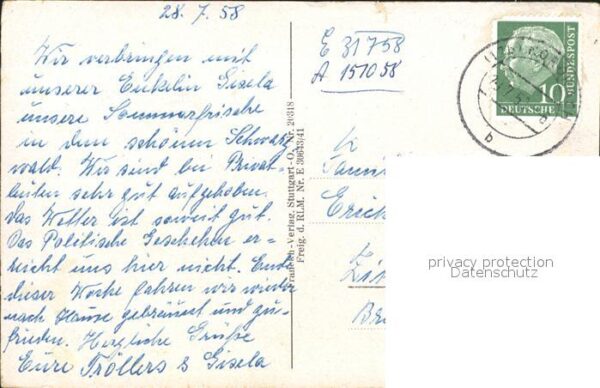 28.7.58
Wir verbringen mit
unserer Enkelin Gisela
unsere Sommerfrische
in dem schönen Schwarz
wald. Wir sind bei Privat
leuten sehr gut aufgehoben.
Das Wetter ist soweit gut.
Das Politische Geschehen er-
reicht uns hier nicht. Ende
dieser Woche fahren wir wieder
nach Hause gebräunt und zu-
frieden. Herzliche Grüße
Eure Tröllers & Gisela
E 31758
A 151058
Verlag, Stuttgart-O, Nr. 20318
Freig. d. RLM. Nr. E 30643/41
10
DEUTSCHE BUNDESPOST
b
Erich
privacy protection
Datenschutz